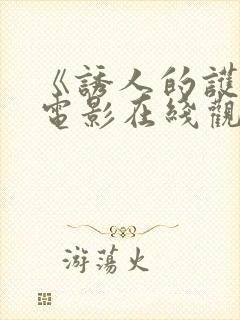 《誘人的護
電影在綫觀
游蕩火